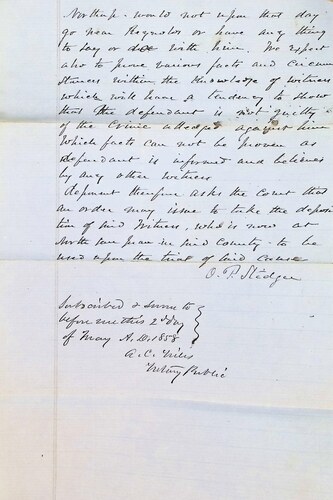 Northup - would not upon that day
go near Reynolds or have any thing
to say or do with him. We expect
also to prove various facts and circum
stances within the knowledge of witness
which will have a tendency to show
that the defendant is not guilty
of the crime alledged against him
Which facts can not be proven as
defendant is informed and believes
by any other witness
deponent therefore asks the Court that
an order may issue to take the deposi
tion of said Witness, who is now at
North San Juan in said County - to
be used upon the trial of said Cause
O. P. Stidger
Subscribed & Sworn to
before me this 2d day
of May A.D. 1858
A. C. Niles
Notary Public